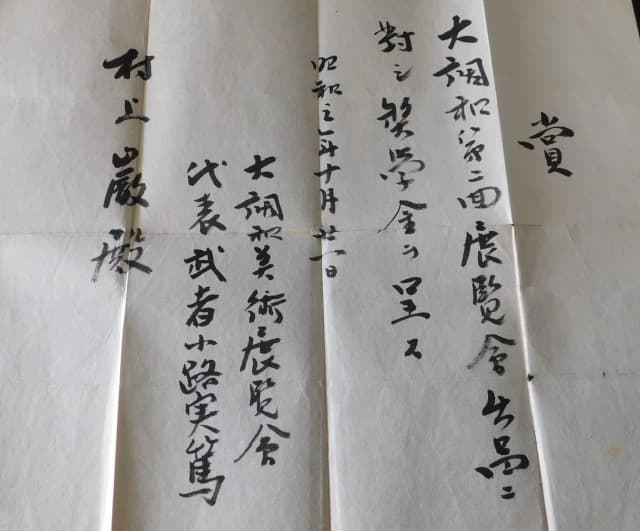 賞
大調和第二回展覧会出品ニ
対シ奨学金ヲ呈ス
昭和三年十月廿一日
大調和美術展覧会
代表武者小路実篤
村上巖殿